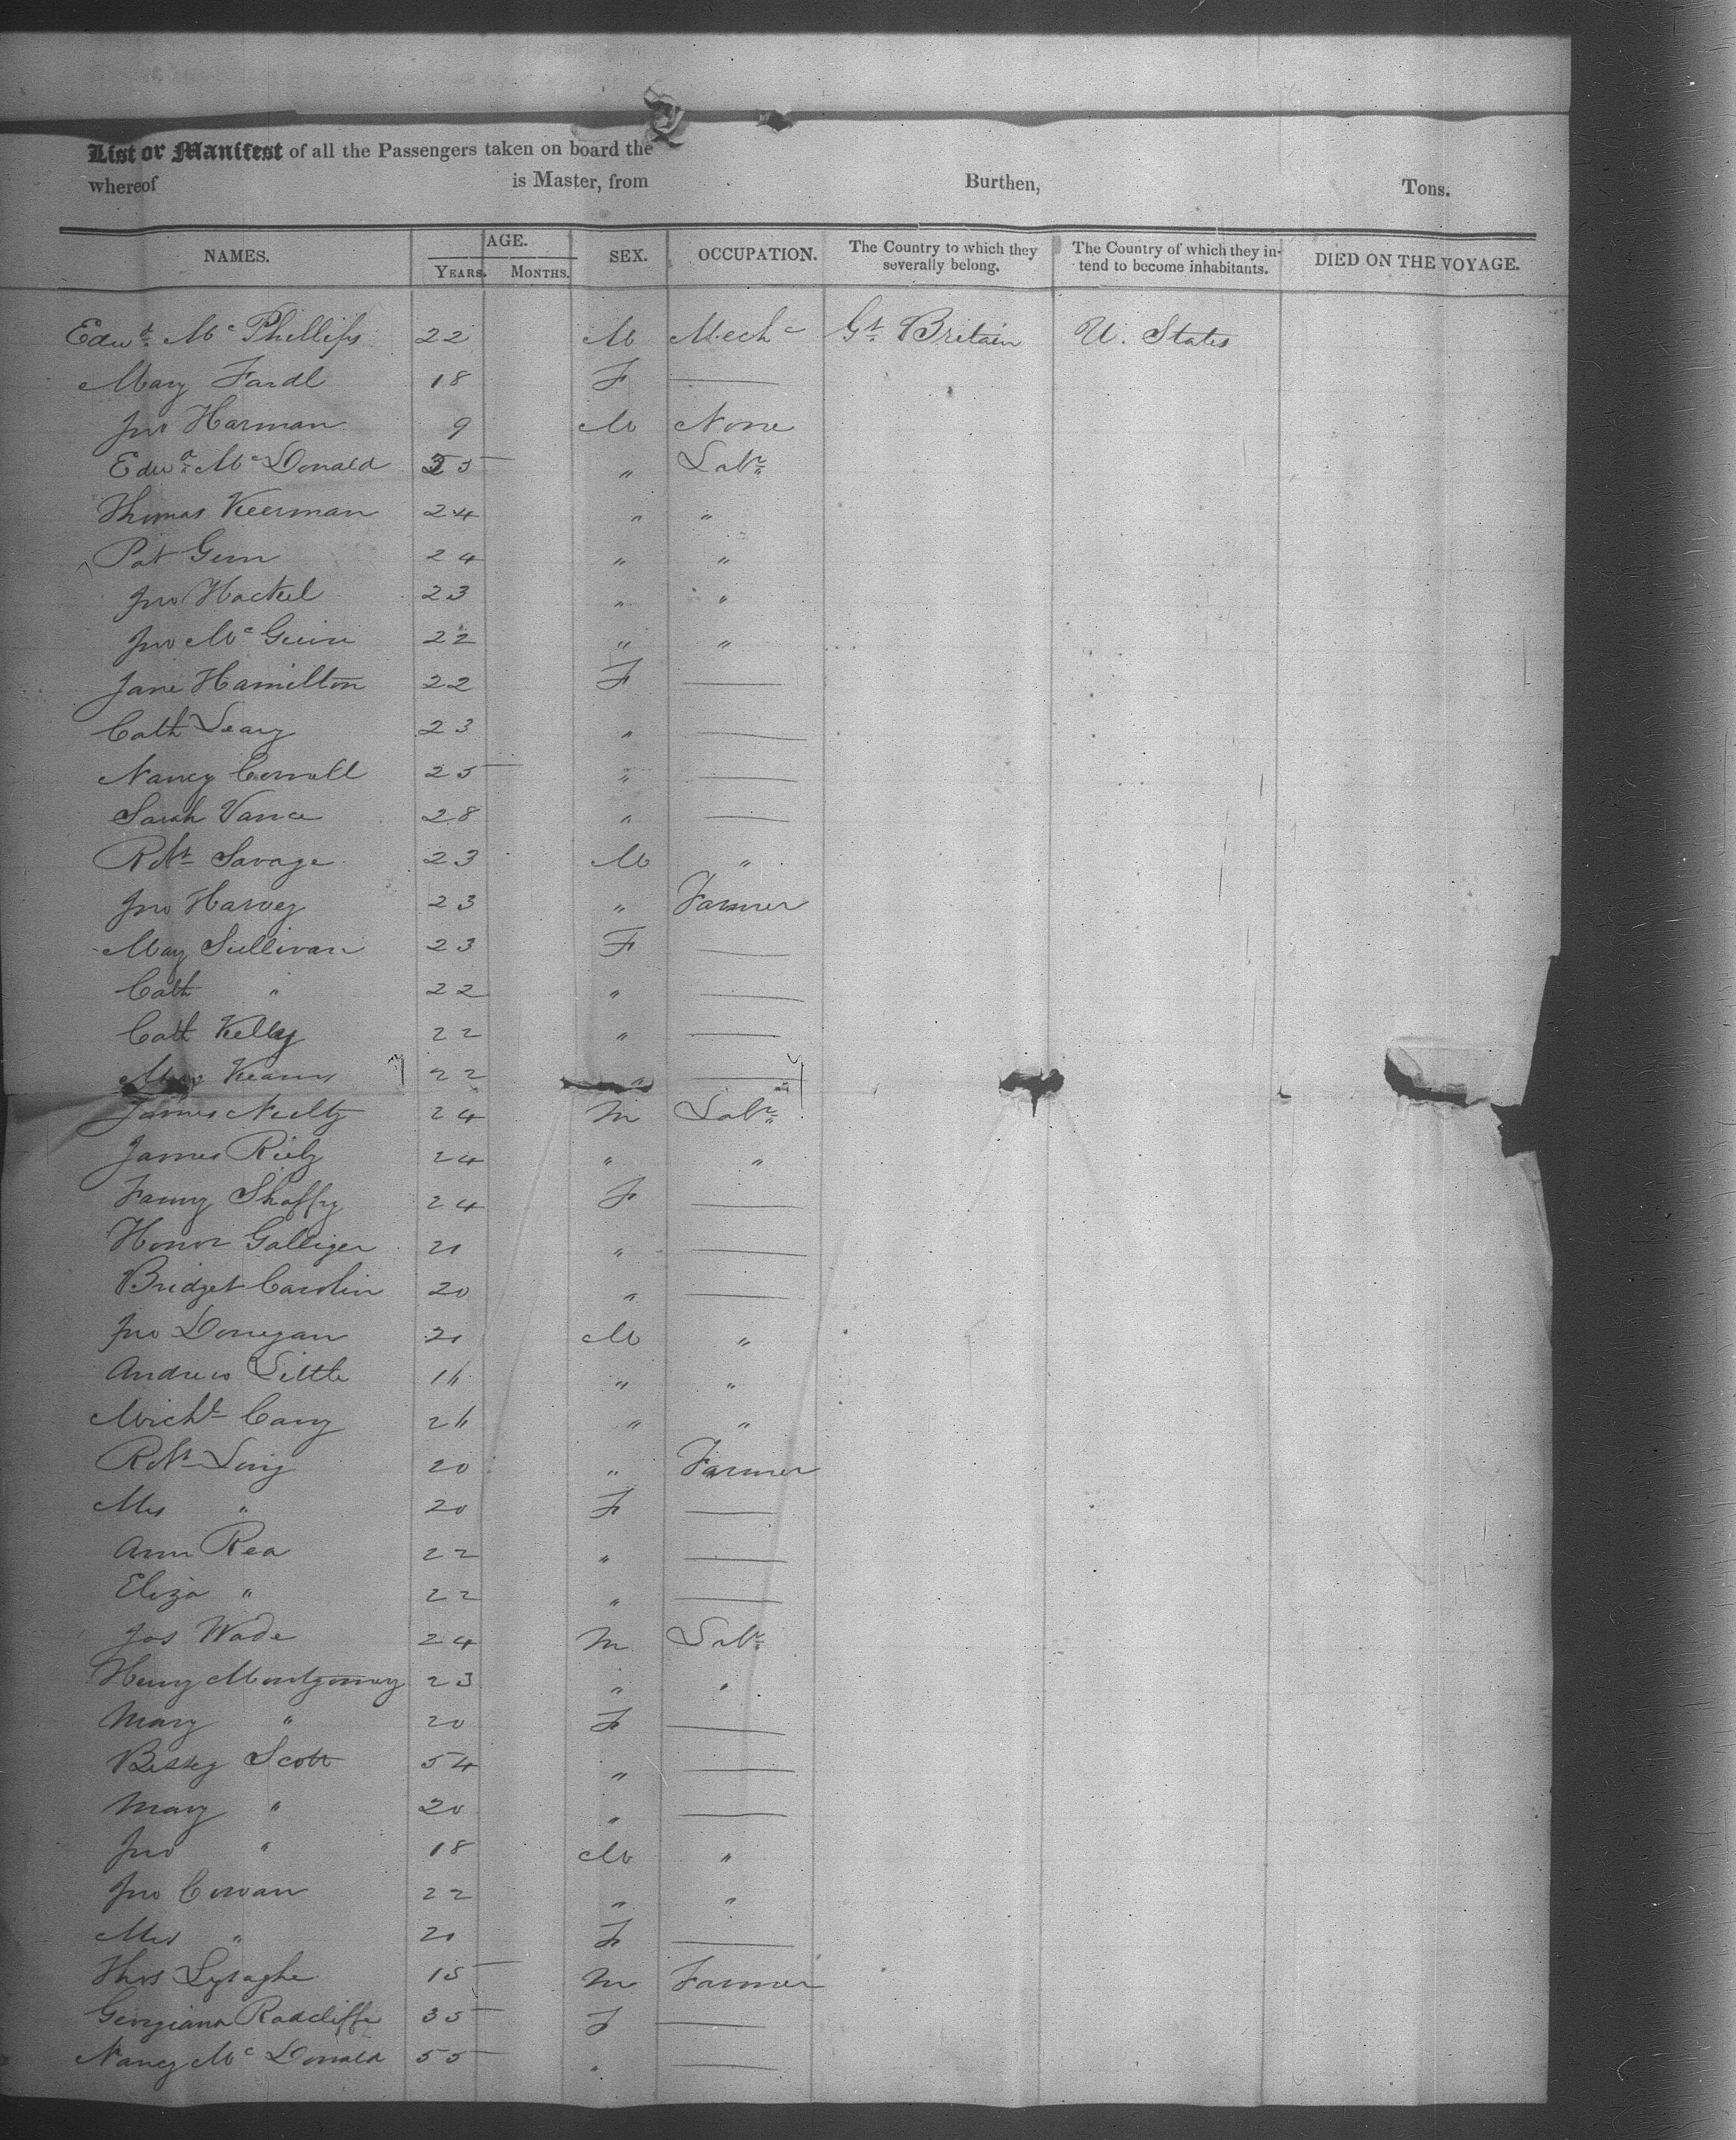 List or Manifest of all the Passengers taken on board the
whereof is Master, from Burthen, Tons.
NAMES. AGE. YEARS. MONTHS. SEX. OCCUPATION. The Country to which they severally belong. The Country of which they intend to become inhabitants. DIED ON THE VOYAGE.
Edwd. Mc Phillips 22 M Mechc Gt. Britain U. States
Mary Fardl 18 F —
Jno Harman 9 M None
Edwd. Mc Donald 35 " Labr.
Thomas Keerman 24 " "
Pat Genn 24 " "
Jno Hackel 23 " "
Jno Mc Guire 22 " "
Jane Hamilton 22 F —
Cath Leary 23 " —
Nancy 25 " —
Sarah Vance 28 " —
Robt. Savage 23 M "
Jno Harvey 23 " Farmer
May Sullivan 23 F —
Cath " 22 " —
Cath Kelly 22 " —
Kearns 22 " —
James 24 M Labr.
James Riely 24 " "
Fanny Shaffry 24 F —
Honor Galliger 21 " —
Bridget Carolin 20 " —
Jno Donegan 21 M "
Andrew Little 16 " "
Michl. Cary 26 " "
Robt. Long 20 " Farmer
Mrs " 20 F —
Ann Rea 22 " —
Eliza " 22 " —
Jos Wade 24 M Labr.
Henry Montgomery 23 " "
Mary " 20 F —
Betsey Scott 54 " —
Mary " 20 " —
Jno " 18 M "
Jno Cowan 22 " "
Mrs " 21 F —
Thos Lysaghe 15 M Farmer
Georgiana Radcliffe 35 F —
Nancy Mc Donald 55 " —